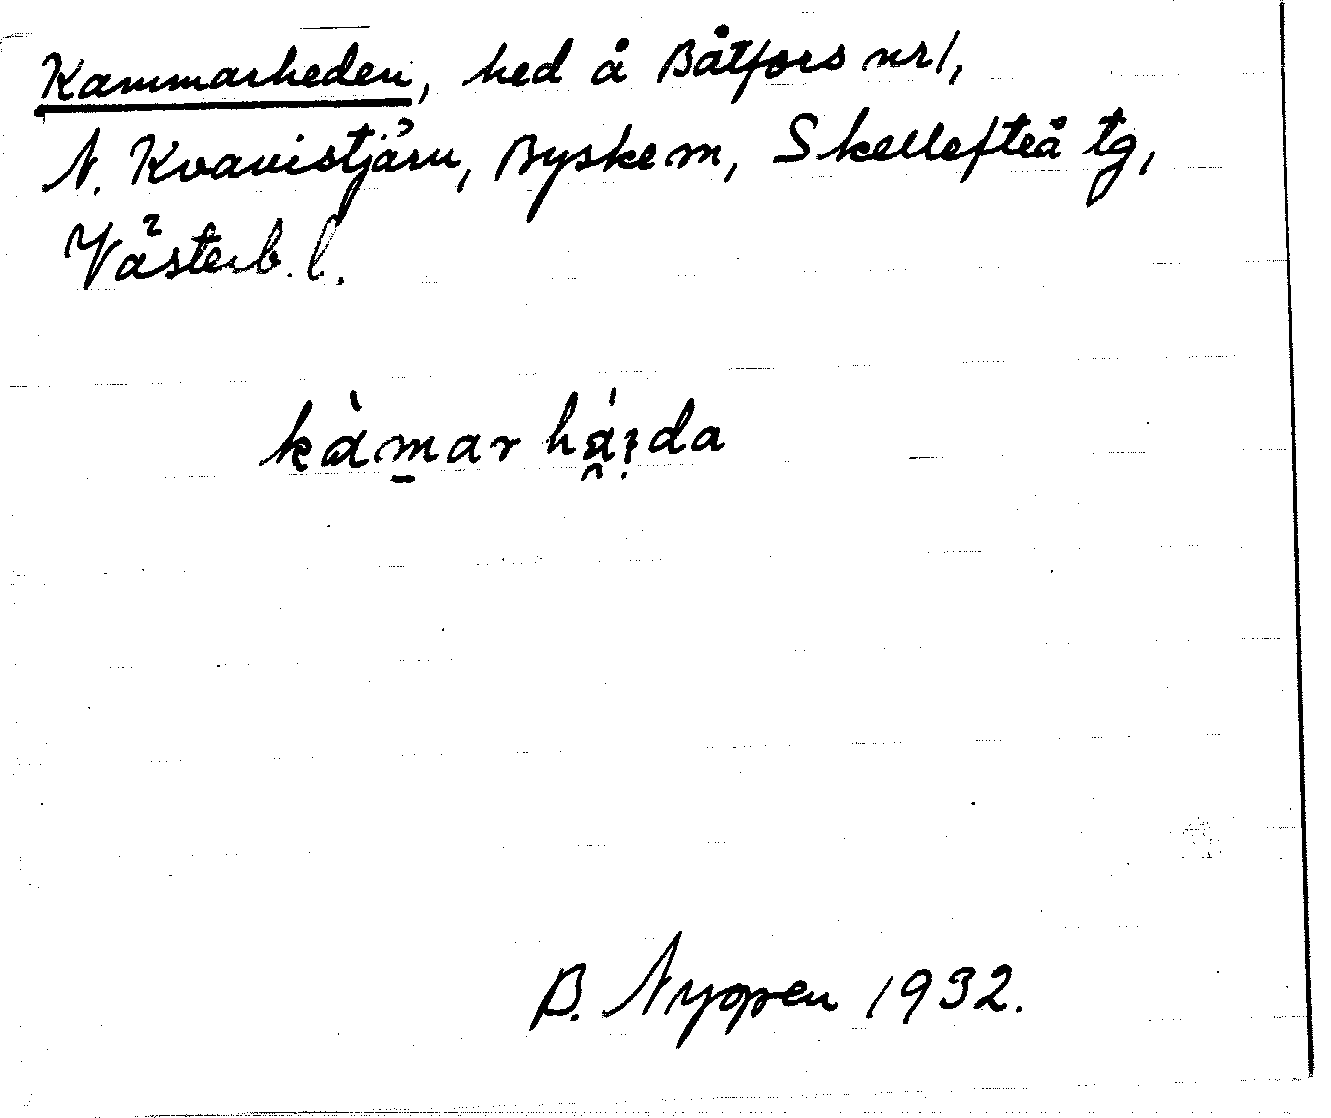 Kammarheden, hed å Båtfors nr 1,
N. Kvavisträsk, Byske sn, Skellefteå tg,
Västerb. l.
kàmar há̯ı̣da
B. Nygren 1932.